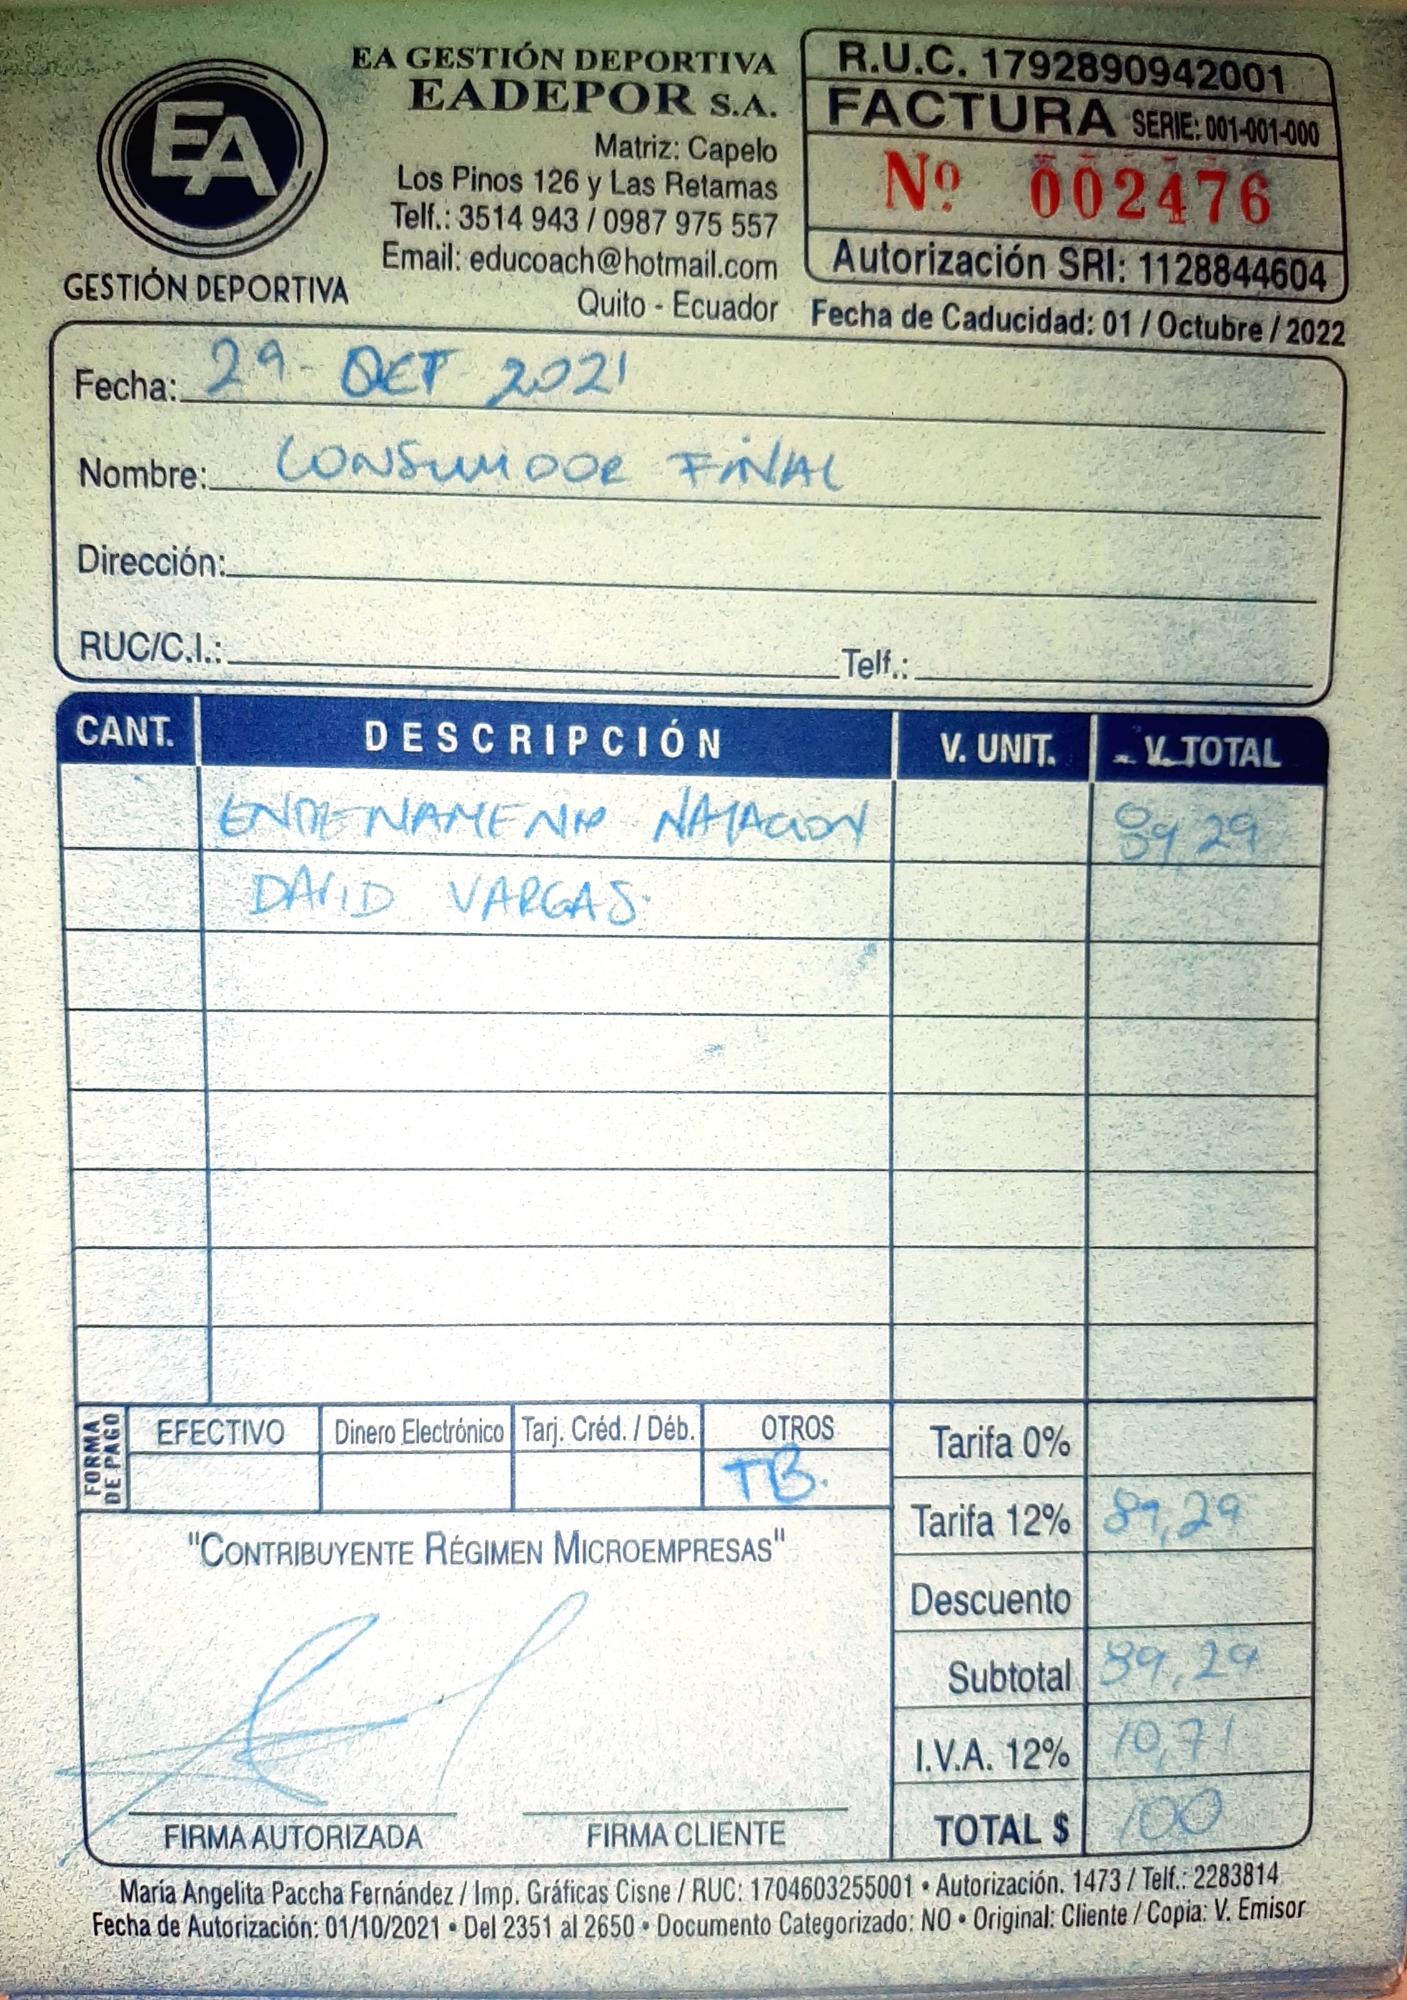 EA
GESTIÓN DEPORTIVA
EA GESTIÓN DEPORTIVA
EADEPOR S.A.
Matriz: Capelo
Los Pinos 126 y Las Retamas
Telf.: 3514 943 / 0987 975 557
Email: educoach@hotmail.com
Quito - Ecuador
R.U.C. 1792890942001
FACTURA SERIE: 001-001-000
Nº 002476
Autorización SRI: 1128844604
Fecha de Caducidad: 01 / Octubre / 2022
Fecha: 29 - OCT 2021
Nombre: CONSUMIDOR FINAL
Dirección:
RUC/C.I.: Telf.:
CANT. DESCRIPCIÓN V. UNIT. V. TOTAL
NATACION 89,29
DAVID VARGAS
FORMA DE PAGO
EFECTIVO Dinero Electrónico Tarj. Créd. / Déb. OTROS
TB.
Tarifa 0%
Tarifa 12% 89,29
Descuento
Subtotal 89,29
I.V.A. 12% 10,71
TOTAL $ 100
"CONTRIBUYENTE RÉGIMEN MICROEMPRESAS"
FIRMA AUTORIZADA FIRMA CLIENTE
María Angelita Paccha Fernández / Imp. Gráficas Cisne / RUC: 1704603255001 • Autorización. 1473 / Telf.: 2283814
Fecha de Autorización: 01/10/2021 • Del 2351 al 2650 • Documento Categorizado: NO • Original: Cliente / Copia: V. Emisor